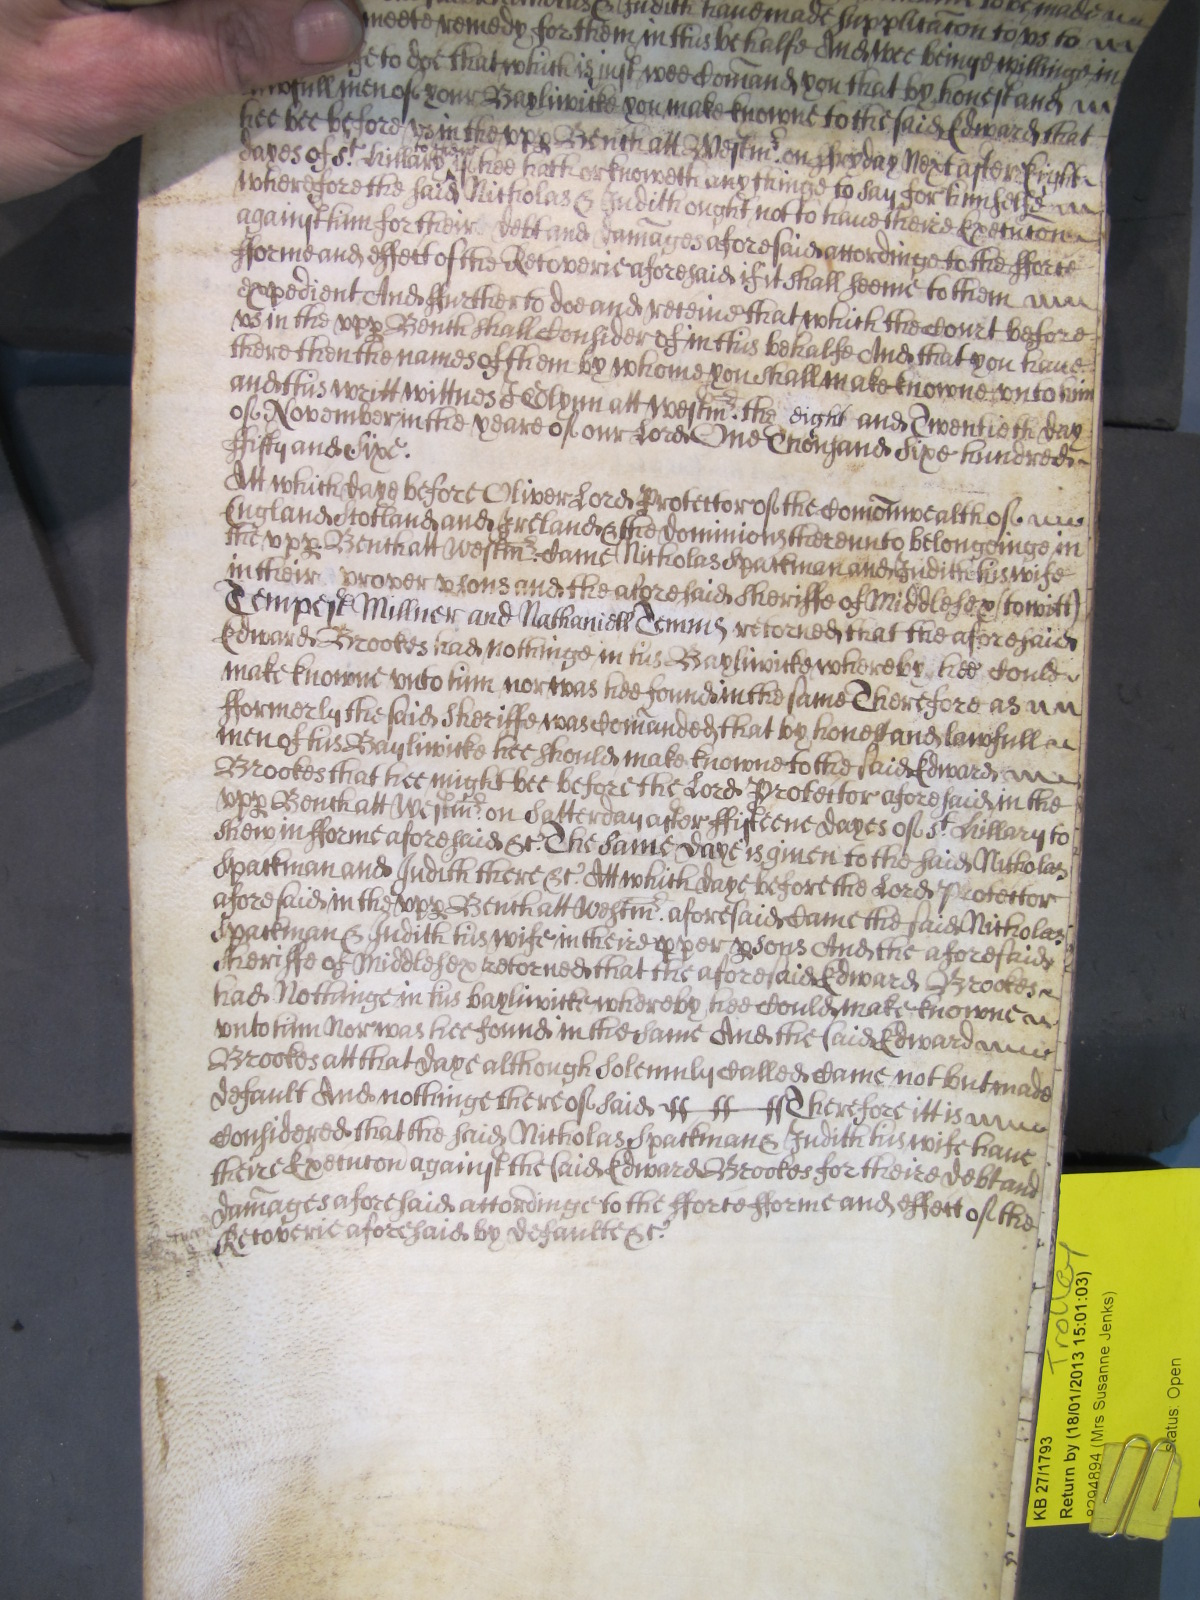 Nicholas & Judith have made supplicacon to vs to
meete remedy for them in this behalfe And wee beinge willinge in
to doe that which is just wee Comand you that by honest and
lawfull men of your Bayliwicke you make knowne to the said Edward that
hee bee before vs in the vpp Bench att Westmr. on ffryday Next after Eight
dayes of St. Hillary to shew if hee hath or knoweth any thinge to say for himselfe
wherefore the said Nicholas & Judith ought not to have theire Execucon
against him for their debt and damages aforesaid accordinge to the fforce
fforme and effect of the Recoverie aforesaid if it shall seeme to them
expedient And ffurther to doe and receive that which the Court before
vs in the vpp Bench shall Consider of in this behalfe And that you have
there then the names of them by whome you shall make knowne vnto him
and this writt wittnes J Glynn att Westmr. the eight and Twentieth day
of November in the yeare of our Lord One Thousand Sixe hundred
ffifty and Sixe.
Att which daye before Oliver Lord Protector of the Comonwealth of
England Scotland and Ireland & the dominions thereunto belonginge in
the vpp Bench att Westmr. Came Nicholas Spackman and Judith his wife
in their proper psons and the aforesaid Sheriffe of Middlesex (to witt)
Tempest Millner and Nathaniell Temms retorned that the aforesaid
Edward Brookes had nothinge in his Bayliwicke whereby hee Could
make knowne vnto him nor was hee found in the same Therefore as
fformerly the said Sheriffe was Comanded that by honest and lawfull
men of his Bayliwicke hee should make knowne to the said Edward
Brookes that hee might bee before the Lord Protector aforesaid in the
vpp Bench att Westmr. on Satterday after ffifteene dayes of St. Hillary to
shew in fforme aforesaid &c. The same daye is given to the said Nicholas
Spackman and Judith there &c. Att which daye before the Lord Protector
aforesaid in the vpp Bench att Westmr. aforesaid Came the said Nicholas
Spackman & Judith his wife in theire pper psons And the aforesaid
Sheriffe of Middlesex retorned that the aforesaid Edward Brookes
had Nothinge in his bayliwicke whereby hee Could make knowne
vnto him Nor was hee found in the same And the said Edward
Brookes att that daye although Solemnly Called Came not but made
default And nothinge thereof said Therefore itt is
Considered that the said Nicholas Spackman & Judith his wife have
theire Execucon against the said Edward Brookes for theire debt and
damages aforesaid accordinge to the fforce fforme and effect of the
Recoverie aforesaid by defaulte &c.
Trolley
KB 27/1793
Return by (18/01/2013 15:01:03)
8294894 (Mrs Susanne Jenks)
status: Open